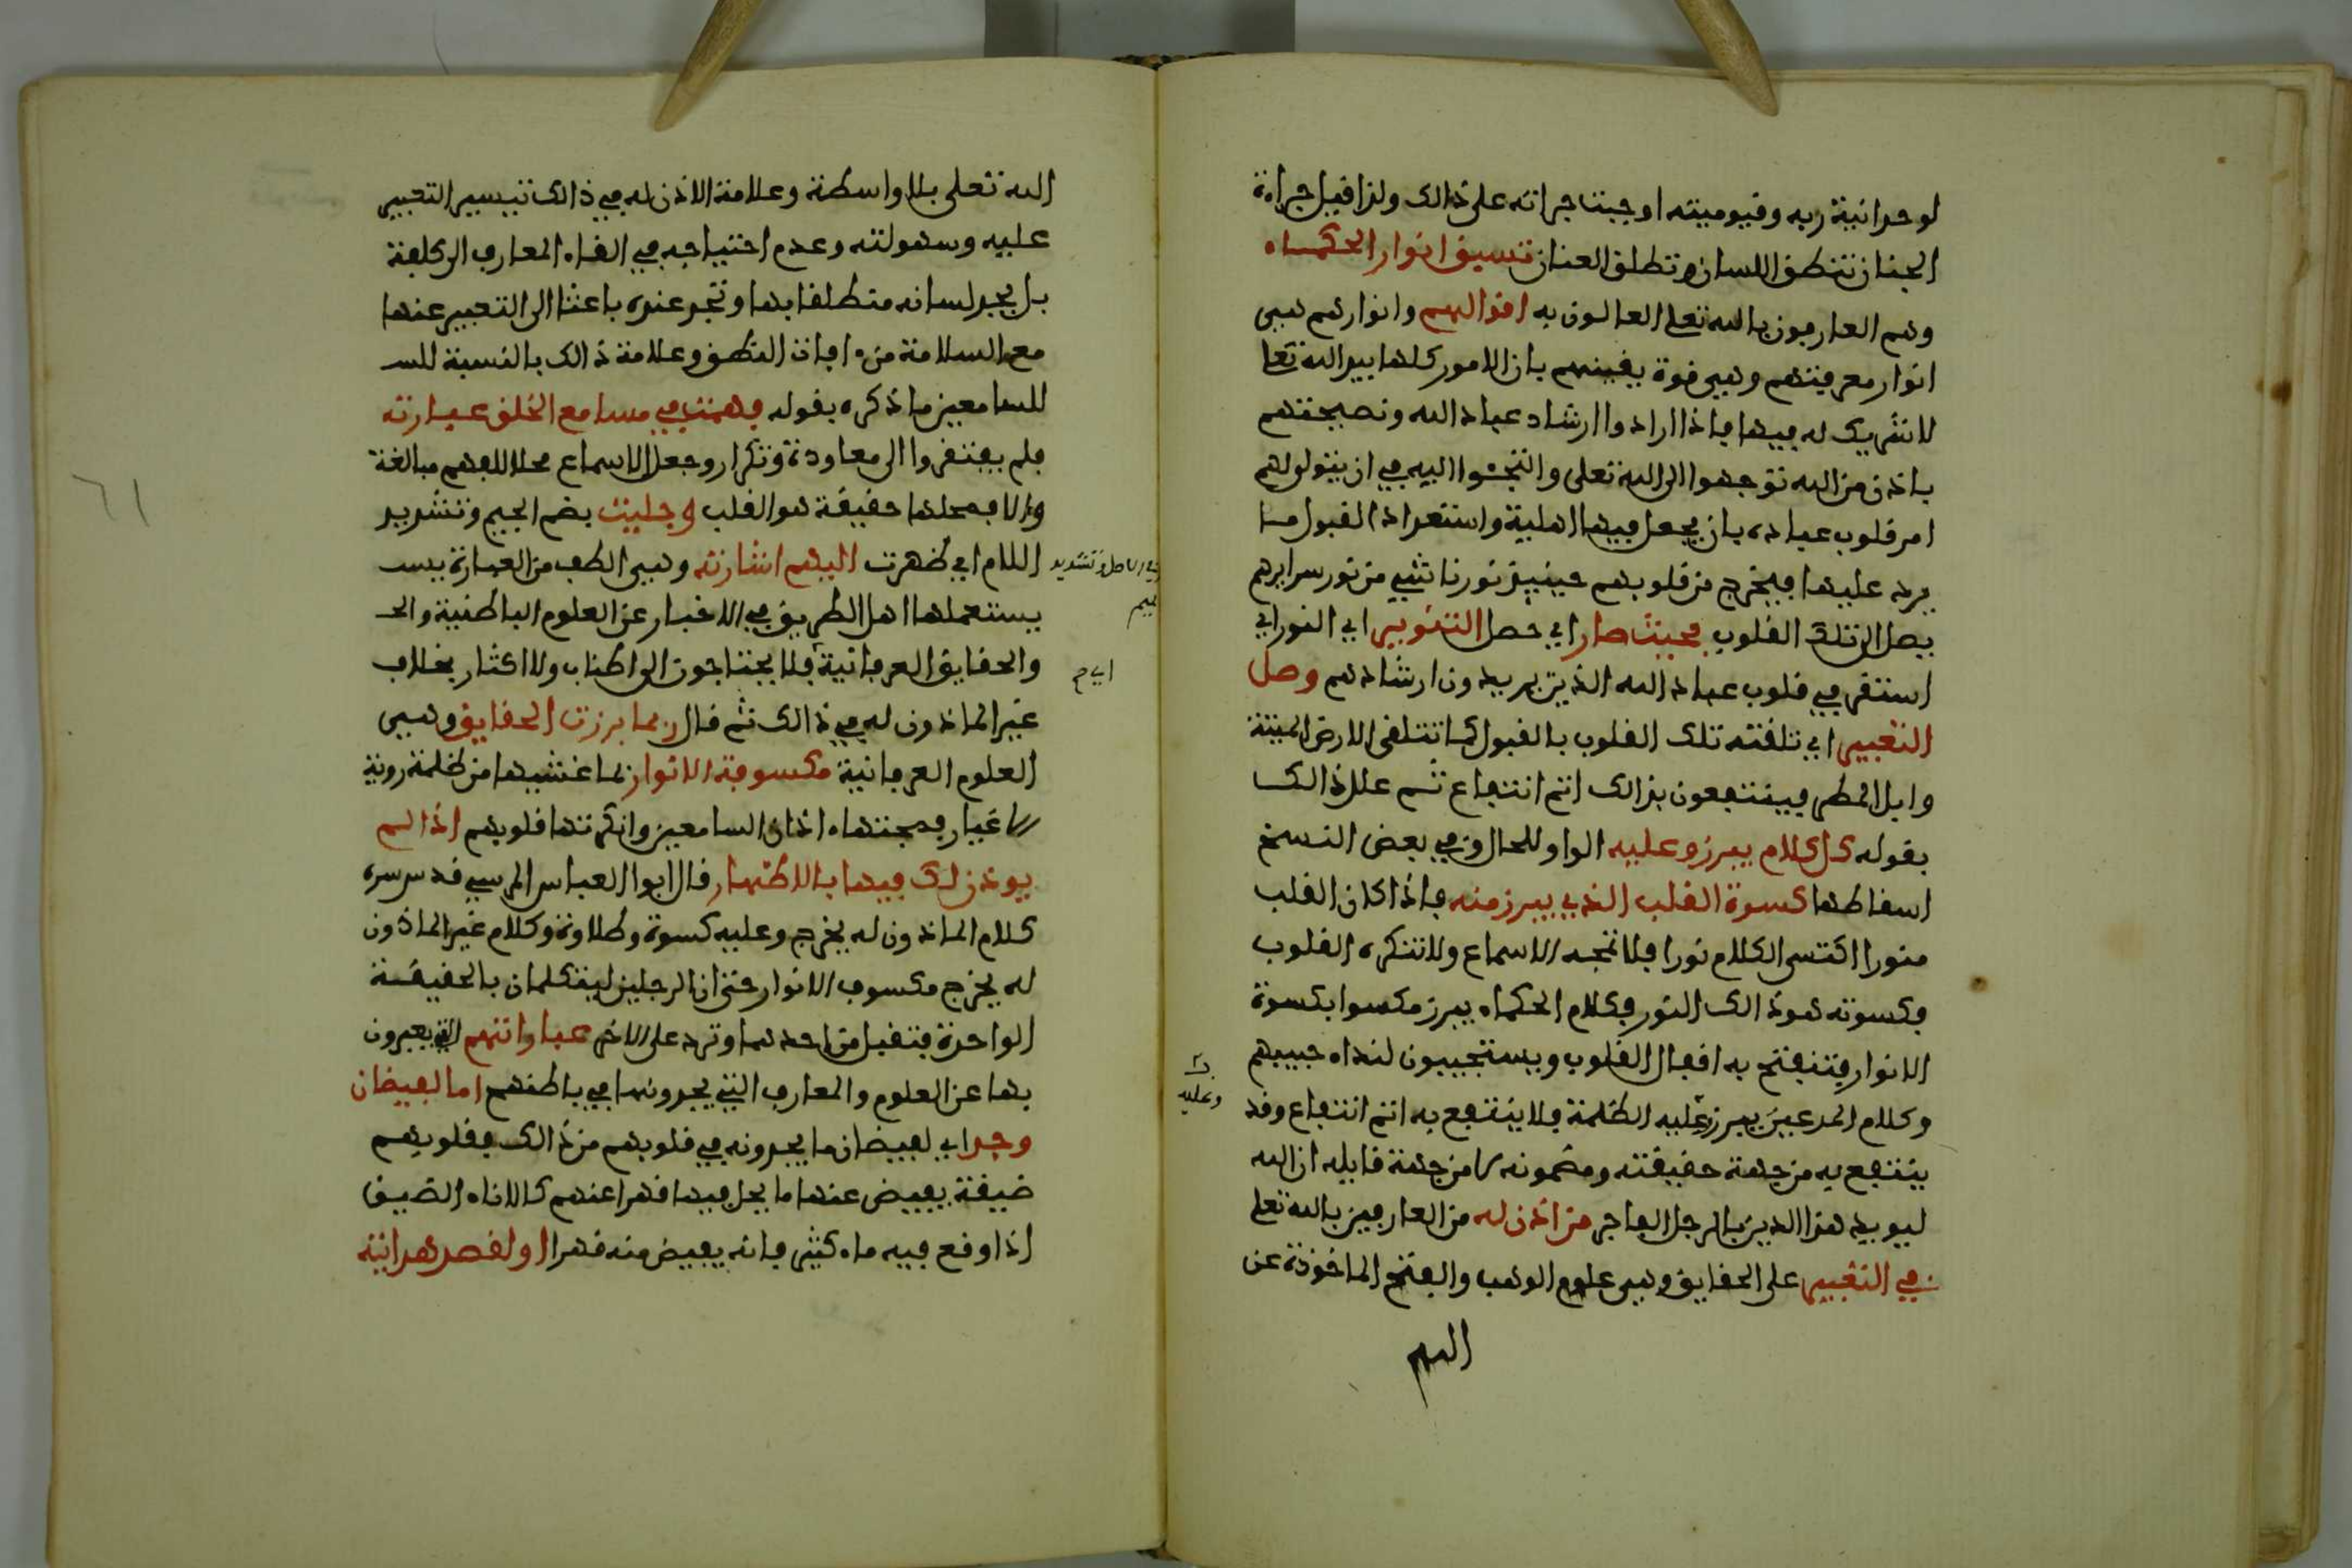 لوحدانية ربه وقيوميته اوجبت جراته على ذالك ولذا قيل جراءة
الجنان تنطق اللسان وتطلق العنان تسبق انوار الحكماء
وهم العارفون بالله تعلى العالون به اقوالهم وانوارهم هيى
انوار معرفتهم وهيى قوة يقينهم بان الامور كلها بيد الله تعلى
لا شريك له فيها فاذا ارادوا ارشاد عباد الله ونصيحتهم
باذن من الله توجهوا الى الله تعلى والتجئوا اليه في ان يتولى لهم
امر قلوب عباده بان يجعل فيها اهلية واستعدادا لقبول ما
يرد عليها فيخرج من قلوبهم حينيذ نور ناشيى من نور سرايرهم
يصل الى تلك القلوب فحيث صار اي حصل التنوير اي النور اي
استقر في قلوب عباد الله الذين يريدون ارشادهم وصل
التعبير اي تلقته تلك القلوب بالقبول كما تتلقى الارض الميتة
وابل المطر فينتفعون بذالك اتم انتفاع ثم علل ذالك
بقوله كل كلام يبرز وعليه الواو للحال وفي بعض النسخ
اسقاطها كسوة القلب الذي يبرز منه فاذا كان القلب
منورا اكتسى الكلام نورا فلا تمجه الاسماع ولا تنكره القلوب
فكسوته هو ذالك النور فكلام الحكماء يبرز مكسوا بكسوة
الانوار فتنفتح به اقفال القلوب ويستجيبون لنداء حبيبهم
وكلام المدعين يبرز عليه الظلمة فلا ينتفع به اتم انتفاع وقد
وعليه
ينتفع به من جهة حقيقته ومضمونه لا من جهة قايله ان الله
ليويد هذا الدين بالرجل الفاجر من اذن له من العارفين بالله تعلى
في التعبير على الحقايق وهيى علوم الوهب والفتح الماخوذة عن
الله
الله تعلى بلا واسطة وعلامة الاذن له في ذالك تيسير التعبير
عليه وسهولته وعدم احتياجه في القاء المعارف الى كلفة
بل يجد لسانه منطلقا بها وتجد عنده باعثا الى التعبير عنها
مع السلامة من افات النطق وعلامة ذالك بالنسبة للس
للسامعين ما ذكره بقوله فهمت في مسامع الخلق عبارته
فلم يفتقروا الى معاودة وتكرار وجعل الاسماع محلا للفهم مبالغة
والا فمحلها حقيقة هو القلب وجليت بضم الجيم وتشديد
اللام اي ظهرت اليهم اشارته وهيى الطف من العبارة يس
في الاصل وتشديد
ميم
يستعملها اهل الطريق في الاخبار عن العلوم الباطنية والح
والحقايق العرفانية فلا يحتاجون الى اطناب ولا اكثار بخلاف
اي م
غير الماذون له في ذالك ثم قال ربما برزت الحقايق وهيى
العلوم العرفانية مكسوفة الانوار لما غشيها من ظلمة روية
الاغيار فمجتها اذان السامعين وانكرتها قلوبهم اذا لم
يوذن لك فيها بالاظهار قال ابوا العباس المرسي قدس سره
كلام الماذون له يخرج وعليه كسوة وطلاوة وكلام غير الماذون
له يخرج مكسوف الانوار حتى ان الرجلين ليتكلمان بالحقيقة
الواحدة فتقبل من احدهما وترد على الاخر عباراتهم التي يعبرون
بها عن العلوم والمعارف التي يجدونها في باطنهم اما لفيضان
وجد اي لفيضان ما يجدونه في قلوبهم من ذالك فقلوبهم
ضيقة يفيض عنها ما يحل فيها قهرا عنهم كالاناء الضيق
اذا وقع فيه ماء كثير فانه يفيض منه قهرا او لقصد هداية
٦١